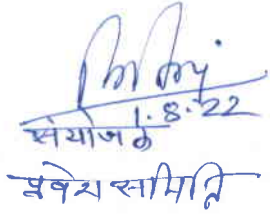 1.8.22
संयोजक
प्रवेश समिति